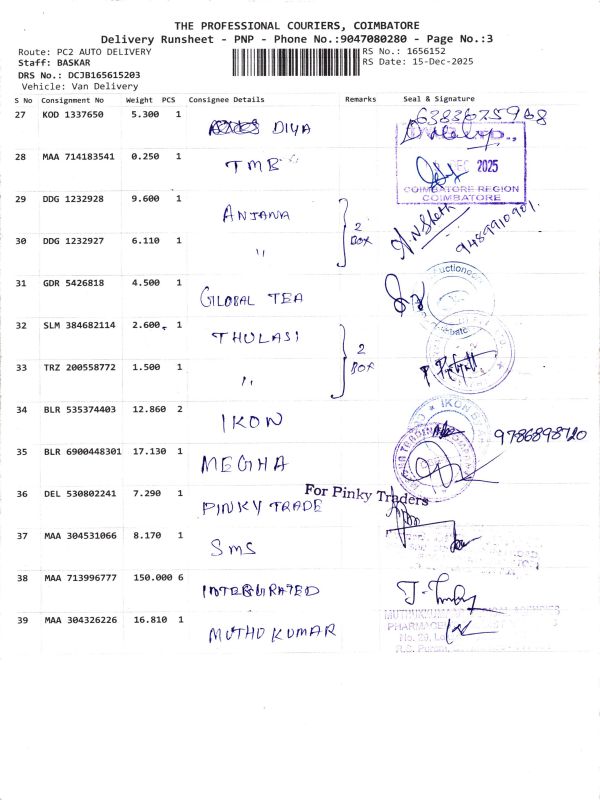 THE PROFESSIONAL COURIERS, COIMBATORE
Delivery Runsheet - PNP - Phone No.:9047080280 - Page No.:3
Route: PC2 AUTO DELIVERY RS No.: 1656152
Staff: BASKAR RS Date: 15-Dec-2025
DRS No.: DCJB165615203
Vehicle: Van Delivery
S No Consignment No Weight PCS Consignee Details Remarks Seal & Signature
27 KOD 1337650 5.300 1 DIYA
28 MAA 714183541 0.250 1 TMB
DEC 2025
COIMBATORE REGION
COIMBATORE
29 DDG 1232928 9.600 1 ANJANA
2 BOX
9489910901
30 DDG 1232927 6.110 1 "
31 GDR 5426818 4.500 1 GLOBAL TEA
32 SLM 384682114 2.600 1 THULASI
2 BOX
33 TRZ 200558772 1.500 1 "
34 BLR 535374403 12.860 2 IKON
IKON
9786898720
35 BLR 6900448301 17.130 1 MEGHA
36 DEL 530802241 7.290 1 PINKY TRADE
For Pinky Traders
37 MAA 304531066 8.170 1 SMS
38 MAA 713996777 150.000 6 INTEGURATED
39 MAA 304326226 16.810 1 MUTHU KUMAR